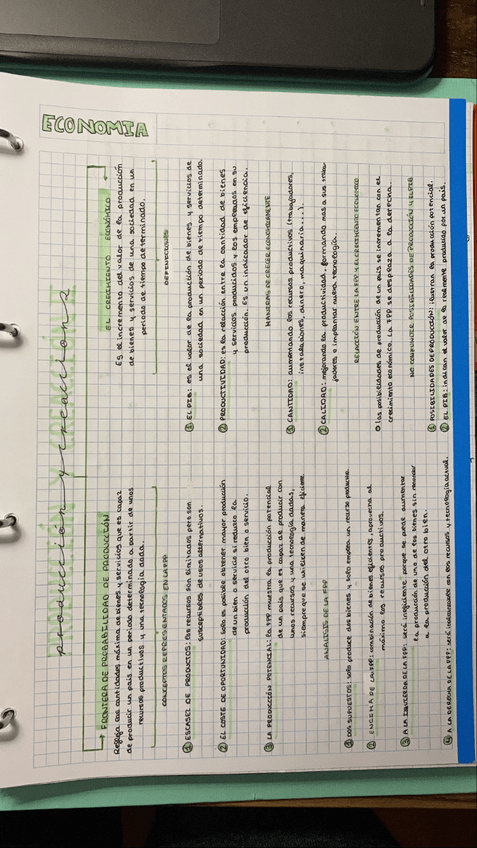 ECONOMIA
producción y creacion
FRONTERA DE PROBABILIDAD DE PRODUCCIÓN
Refleja las cantidades máxima de bienes y servicios que es capaz
de producir un país en un periodo determinado a partir de unos
recursos productivos y una tecnología dada.
CONCEPTOS REPRESENTADOS EN LA FPP
① ESCASEZ DE PRODUCTOS: los recursos son limitados pero son
susceptibles de usos alternativos.
② EL COSTE DE OPORTUNIDAD: solo es posible obtener mayor producción
de un bien o servicio si reduzco la
producción del otro bien o servicio.
③ LA PRODUCCIÓN POTENCIAL: la FPP muestra la producción potencial
de un país que es capaz de producir con
unos recursos y una tecnología dadas,
siempre que se utilicen de manera eficiente.
ANÁLISIS DE LA FPP
① DOS SUPUESTOS: solo produce dos bienes y solo emplea un recurso productivo.
② ENCIMA DE LA FPP: combinación de bienes eficientes, aprovecha al
máximo los recursos productivos.
③ A LA IZQUIERDA DE LA FPP: será ineficiente porque se puede aumentar
la producción de uno de los bienes sin
a la producción del otro bien.
④ A LA DERECHA DE LA FPP: será inalcanzable con los recursos y tecnología actual.
EL CRECIMIENTO ECONÓMICO
Es el incremento del valor de la producción
de bienes y servicios de una sociedad en un
periodo de tiempo determinado.
DEFINICIONES
① EL PIB: es el valor de la producción de bienes y servicios de
una sociedad en un periodo de tiempo determinado.
② PRODUCTIVIDAD: es la relación entre la cantidad de bienes
y servicios producidos y los empleados en su
producción. Es un indicador de eficiencia.
MANERAS DE CRECER ECONÓMICAMENTE
① CANTIDAD: aumentando los recursos productivos (trabajadores,
instalaciones, dinero, maquinaria...).
② CALIDAD: mejorando la productividad, formando mas a sus traba-
jadores e implantar nueva tecnología.
RELACIÓN ENTRE LA FPP Y EL CRECIMIENTO ECONÓMICO
las posibilidades de producción de un país se incrementan con el
crecimiento económico. La FPP se desplaza a la derecha.
NO CONFUNDIR POSIBILIDADES DE PRODUCCIÓN Y EL PIB
① POSIBILIDADES DE PRODUCCIÓN: ilustran la producción potencial.
② EL PIB: indican el valor de lo realmente producido por un país.